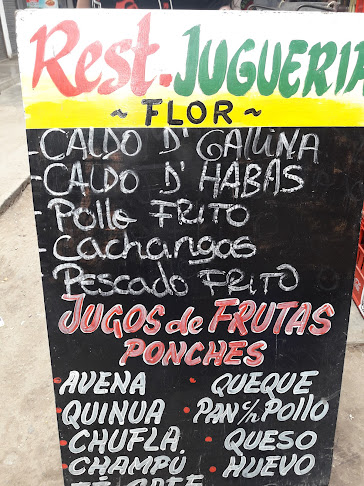 Rest. JUGUERIA
~ FLOR ~
-CALDO D' GALLINA
-CALDO D' HABAS
-Pollo FRITO
-Cachangas
-Pescado FRITO
JUGOS de FRUTAS
PONCHES
• AVENA • QUEQUE
• QUINUA • PAN c/n Pollo
• CHUFLA • QUESO
• CHAMPÚ • HUEVO